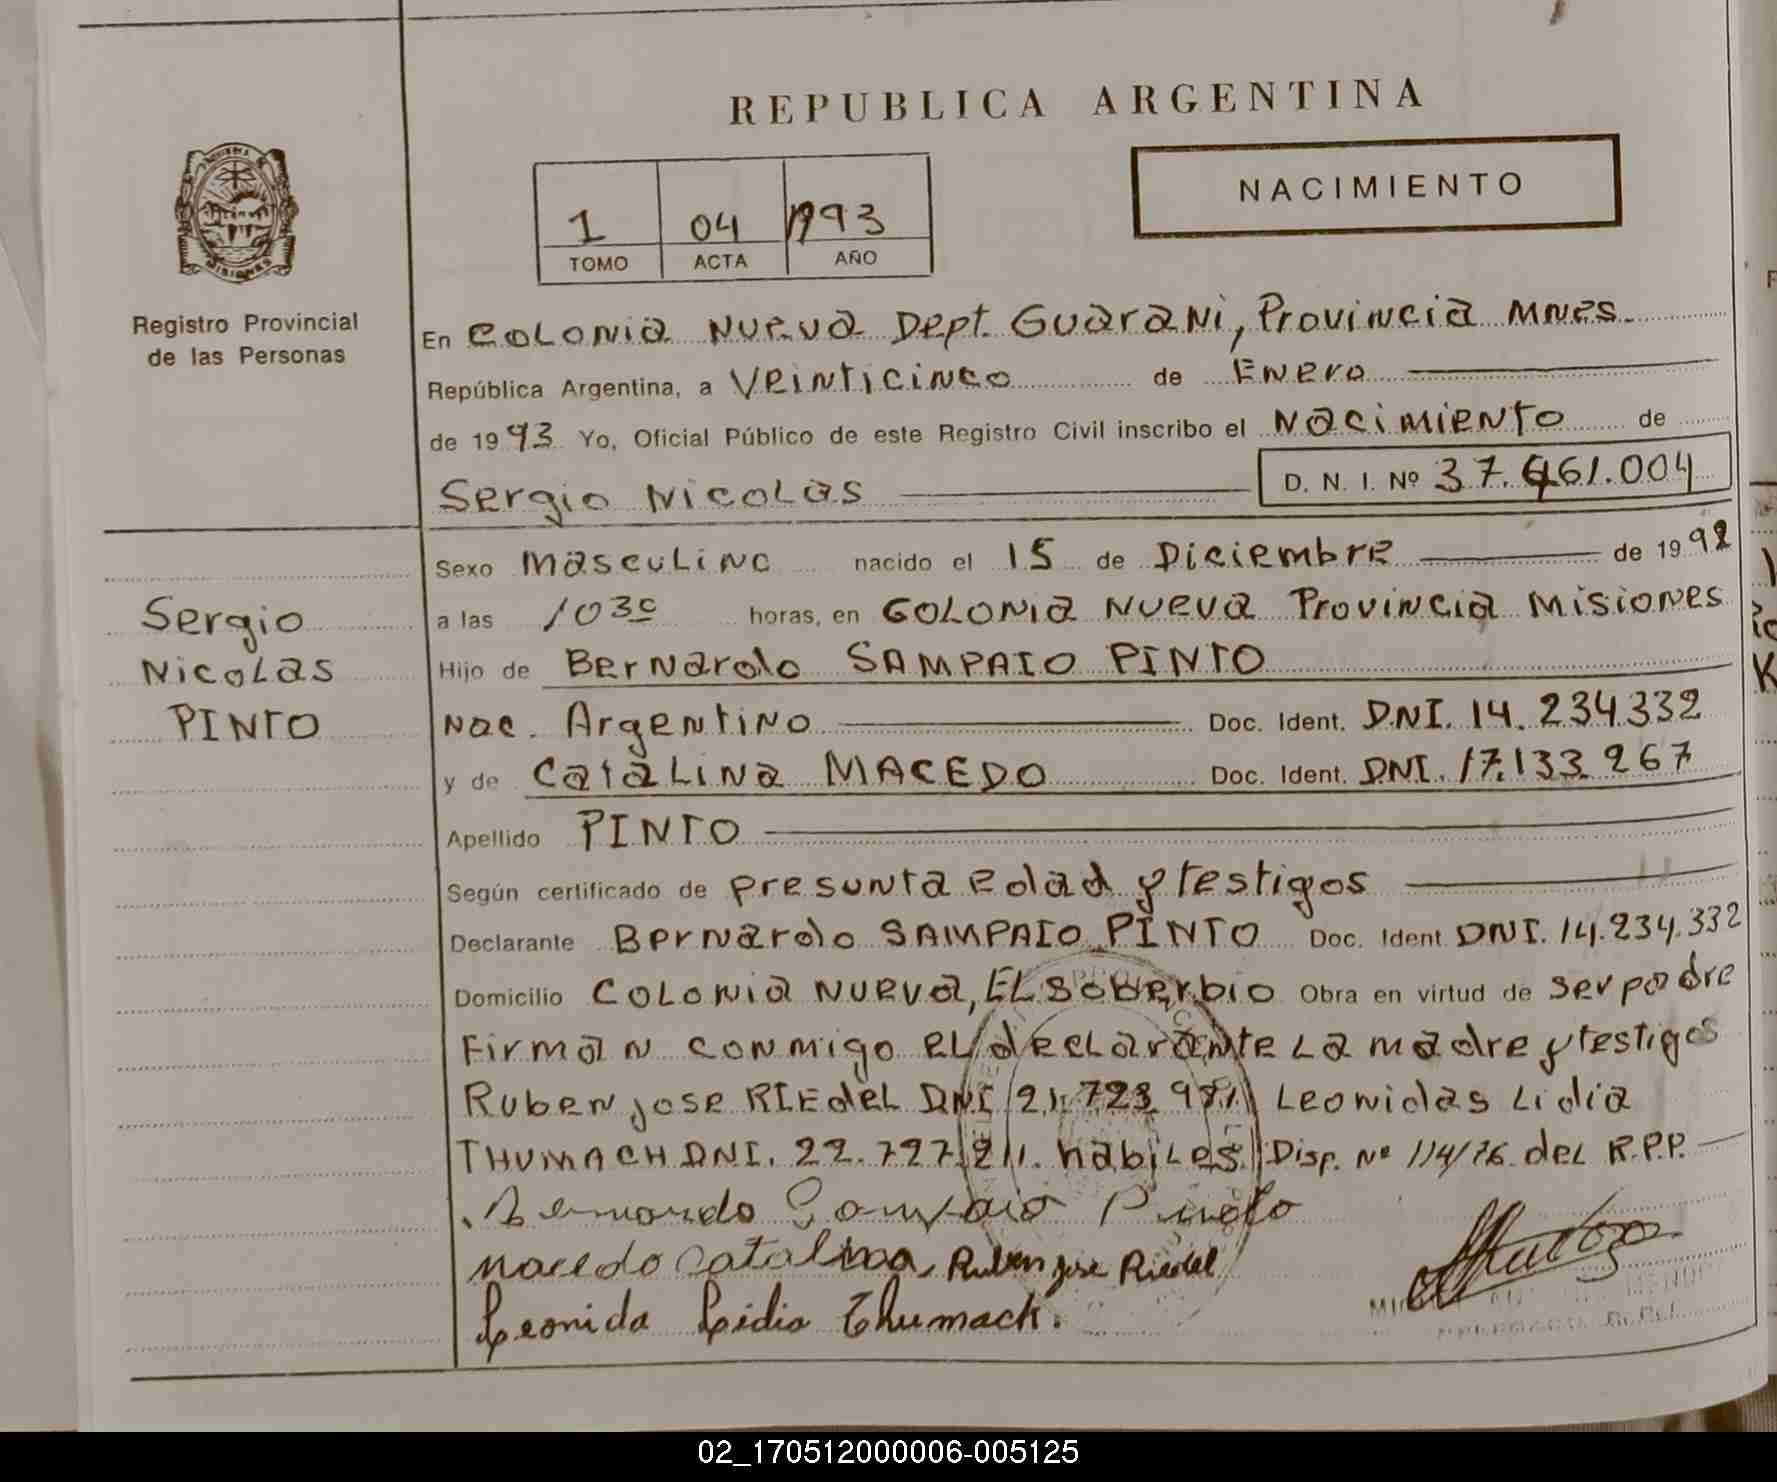 REPUBLICA ARGENTINA
NACIMIENTO
1 04 1993
TOMO ACTA AÑO
Registro Provincial
de las Personas
En COLONIA NUEVA Dept. GUARANI, PROVINCIA MNES.
República Argentina, a VEINTICINCO de ENERO
de 1993 Yo, Oficial Público de este Registro Civil inscribo el NACIMIENTO de
Sergio NICOLAS D. N. I. Nº 37.461.004
Sergio
NICOLAS
PINTO
Sexo MASCULINO nacido el 15 de DICIEMBRE de 1992
a las 1030 horas, en COLONIA NUEVA PROVINCIA MISIONES
Hijo de BERNARDO SAMPAIO PINTO
Nac. Argentino Doc. Ident. DNI. 14.234.332
y de CATALINA MACEDO Doc. Ident. DNI. 17.133.267
Apellido PINTO
Según certificado de presunta edad y testigos
Declarante BERNARDO SAMPAIO PINTO Doc. Ident DNI. 14.234.332
Domicilio COLONIA NUEVA, EL SOBERBIO Obra en virtud de ser padre
Firman conmigo el declarante la madre y testigos
Ruben jose RIEdEL DNI 21.723.981 Leonidas Lidia
THUMACH DNI. 22.727.211. habiles Disp. Nº 114/76 del R.P.P.
Bernardo Sampaio Pinto
Macedo Catalina, Ruben Jose Riedel
Leonida Lidia Thumack.
02_170512000006-005125